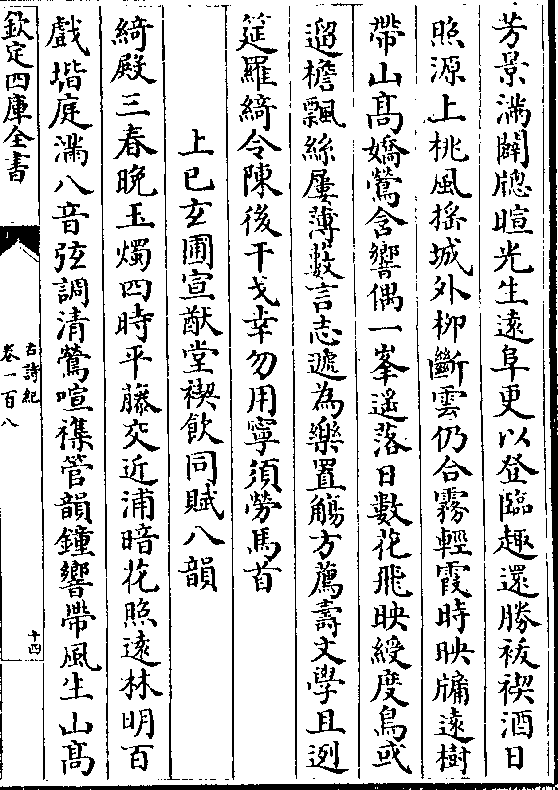 芳景滿闢牕暄光生遠阜更以登臨趣還勝袚禊酒日
照源上桃風揺城外柳斷雲仍合霧輕霞時映牖遠樹
帶山髙嬌鶯含響偶一峯遙落日數花飛映綬度鳥或
邅檐飄絲屢薄藪言志遞為樂置觴方薦壽文學且迾
筵羅綺令陳後干戈幸勿用寧須勞馬首
上巳玄圃宣猷堂禊飲同賦八韻
綺殿三春晚玉燭四時平藤交近浦暗花照遠林明百
戲堦庭滿八音弦調清鶯喧襍管韻鐘響帶風生山髙
欽定四庫全書
古詩紀
卷一百八
十四